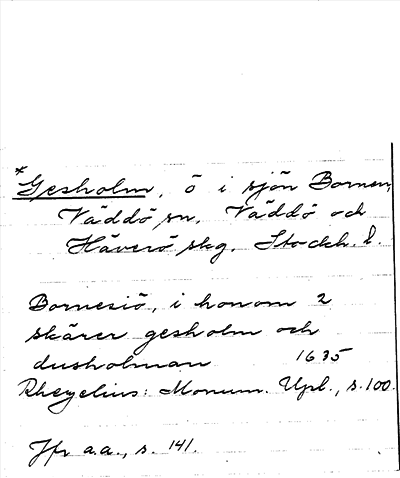 *Gesholm, ö i sjön Bornen,
Väddö sn. Väddö och
Häverö skg. Stockh. l.
Bornesiö, i honom 2
skärer gesholm och
dusholman 1635
Rhezelius: Monum. Upl., s. 100.
Jfr a.a., s. 141.